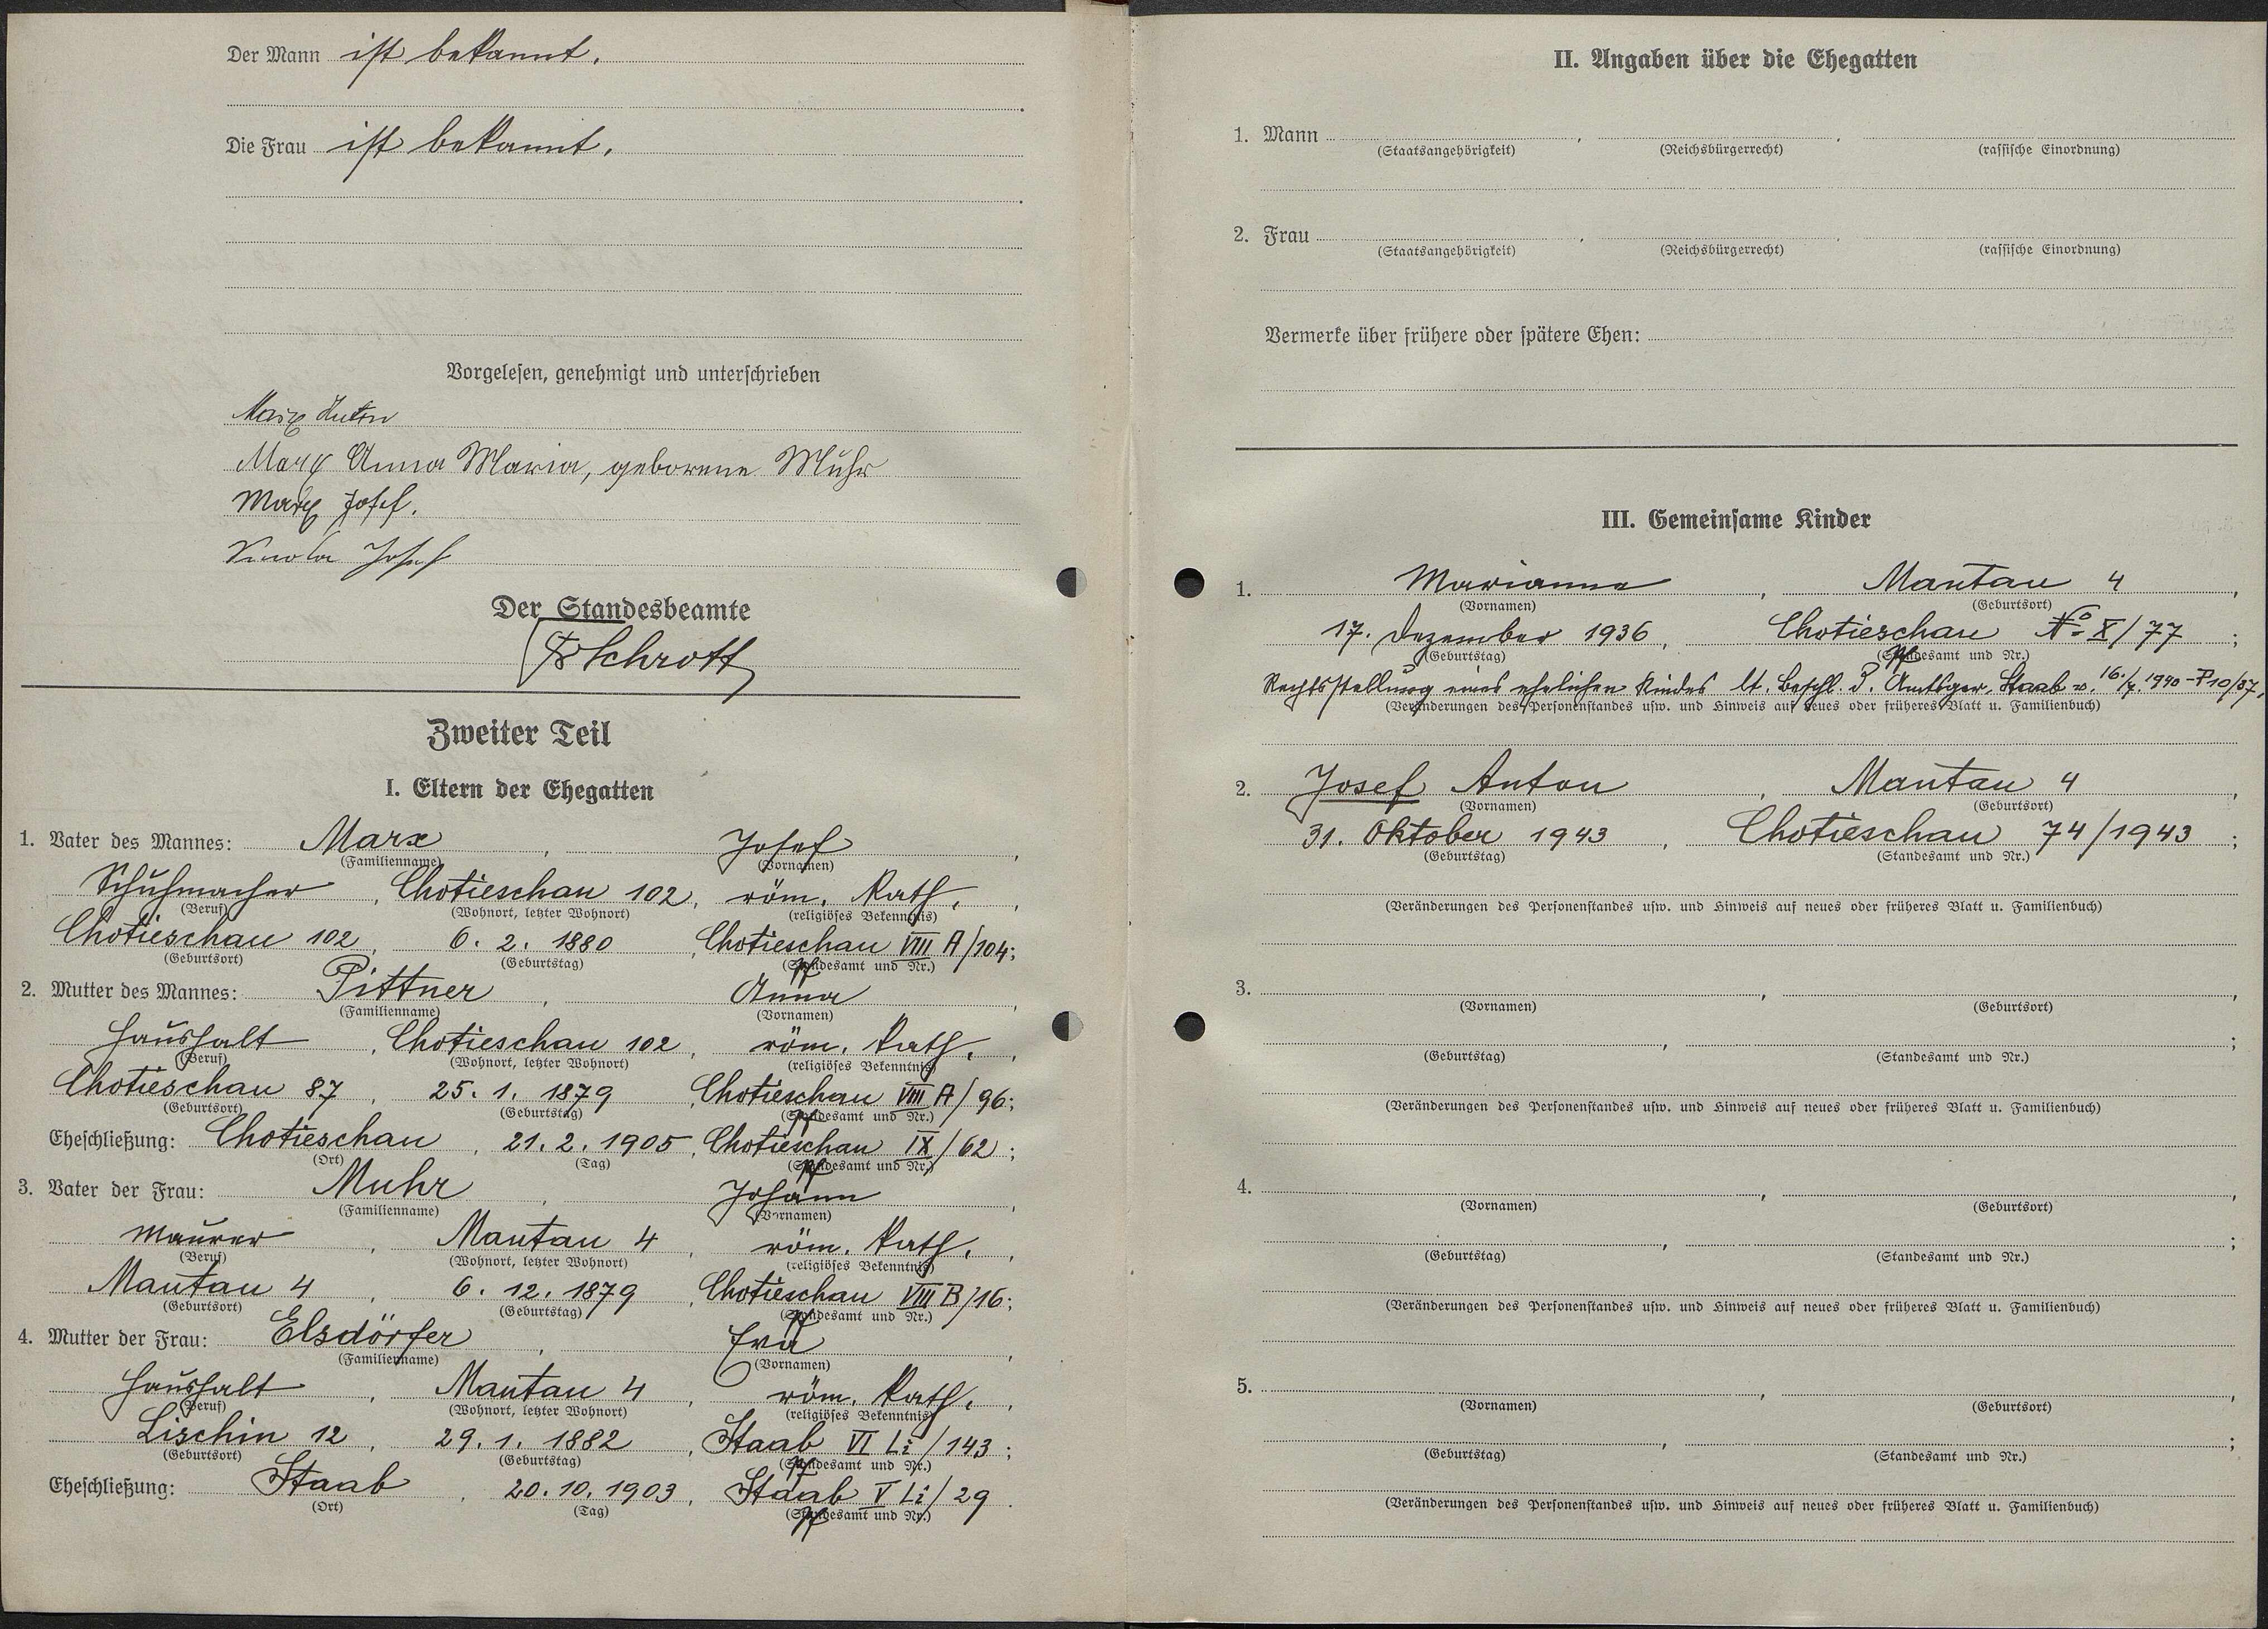 Der Mann ist bekannt.
Die Frau ist bekannt.
Vorgelesen, genehmigt und unterschrieben
Marx Anton
Marx Anna Maria, geborene Muhr
Marx Josef.
Josef
Der Standesbeamte
Schrott
Zweiter Teil
I. Eltern der Ehegatten
1. Vater des Mannes: Marx, Josef,
(Familienname) (Vornamen)
Schuhmacher, Chotieschau 102, röm. kath.,
(Beruf) (Wohnort, letzter Wohnort) (religiöses Bekenntnis)
Chotieschau 102, 6. 2. 1880, Chotieschau VIII A/104;
(Geburtsort) (Geburtstag) (Standesamt und Nr.)
2. Mutter des Mannes: Pittner, Anna,
(Familienname) (Vornamen)
Haushalt, Chotieschau 102, röm. kath.,
(Beruf) (Wohnort, letzter Wohnort) (religiöses Bekenntnis)
Chotieschau 87, 25. 1. 1879, Chotieschau VIII A/96;
(Geburtsort) (Geburtstag) (Standesamt und Nr.)
Eheschließung: Chotieschau, 21. 2. 1905, Chotieschau IX/62;
(Ort) (Tag) (Standesamt und Nr.)
3. Vater der Frau: Muhr, Johann,
(Familienname) (Vornamen)
Maurer, Mantau 4, röm. kath.,
(Beruf) (Wohnort, letzter Wohnort) (religiöses Bekenntnis)
Mantau 4, 6. 12. 1879, Chotieschau VIII B/16;
(Geburtsort) (Geburtstag) (Standesamt und Nr.)
4. Mutter der Frau: Elsdörfer, Eva,
(Familienname) (Vornamen)
Haushalt, Mantau 4, röm. kath.,
(Beruf) (Wohnort, letzter Wohnort) (religiöses Bekenntnis)
Lischin 12, 29. 1. 1882, Staab VI Li/143;
(Geburtsort) (Geburtstag) (Standesamt und Nr.)
Eheschließung: Staab, 20. 10. 1903, Staab V Li/29.
(Ort) (Tag) (Standesamt und Nr.)
II. Angaben über die Ehegatten
1. Mann , ,
(Staatsangehörigkeit) (Reichsbürgerrecht) (rassische Einordnung)
2. Frau , ,
(Staatsangehörigkeit) (Reichsbürgerrecht) (rassische Einordnung)
Vermerke über frühere oder spätere Ehen:
III. Gemeinsame Kinder
1. Marianne, Mantau 4,
(Vornamen) (Geburtsort)
17. Dezember 1936, Chotieschau No X/77;
(Geburtstag) (Standesamt und Nr.)
Rechtsstellung eines ehelichen Kindes lt. Beschl. d. Amtsger. Staab v. 16./7. 1940 - P 10/37,
(Veränderungen des Personenstandes usw. und Hinweis auf neues oder früheres Blatt u. Familienbuch)
2. Josef Anton, Mantau 4,
(Vornamen) (Geburtsort)
31. Oktober 1943, Chotieschau 74/1943;
(Geburtstag) (Standesamt und Nr.)
(Veränderungen des Personenstandes usw. und Hinweis auf neues oder früheres Blatt u. Familienbuch)
3. , ,
(Vornamen) (Geburtsort)
, ;
(Geburtstag) (Standesamt und Nr.)
(Veränderungen des Personenstandes usw. und Hinweis auf neues oder früheres Blatt u. Familienbuch)
4. , ,
(Vornamen) (Geburtsort)
, ;
(Geburtstag) (Standesamt und Nr.)
(Veränderungen des Personenstandes usw. und Hinweis auf neues oder früheres Blatt u. Familienbuch)
5. , ,
(Vornamen) (Geburtsort)
, ;
(Geburtstag) (Standesamt und Nr.)
(Veränderungen des Personenstandes usw. und Hinweis auf neues oder früheres Blatt u. Familienbuch)